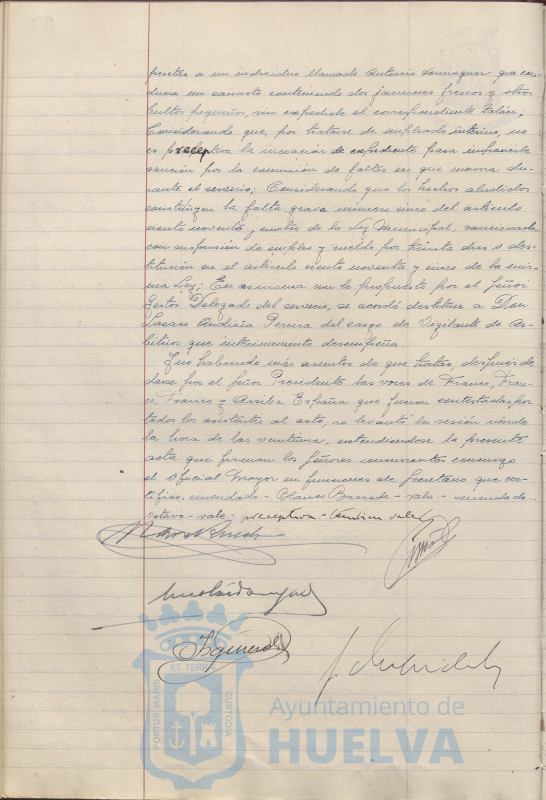 pesetas a un individuo llamado Antonio Dominguez que con-
ducia un canasto conteniendo dos jamones frescos y otros
bultos pequeños, sin expedirle el correspondiente talón;
Considerando que, por tratarse de empleado interino, no
es preceptiva la incoación de expediente para imponerle
sanción por la comisión de faltas en que incurra du-
rante el servicio; Considerando que los hechos aludidos
constituyen la falta grave número cinco del artículo
ciento noventa y cuatro de la Ley Municipal, sancionada
con suspensión de empleo y sueldo por treinta dias o des-
titución en el artículo ciento noventa y cinco de la mis-
ma Ley; En armonia con lo propuesto por el Señor
Gestor Delegado del servicio, se acordó destituir a Don
Lazaro Pereira del cargo de Vigilante de Ar-
bitrios que interinamente desempeña.
Y no habiendo más asuntos de que tratar, despues de
darse por el Señor Presidente las voces de Franco, Fran-
co, Franco y Arriba España que fueron contestadas por
todos los asistentes al acto, se levantó la sesión siendo
la hora de las veintiuna, extendiendose la presente
acta que firman los Señores concurrentes conmigo
el Oficial Mayor en funciones de Secretario que cer-
tifico, enmendado - Blanco - vale -
octavo - vale - preceptiva - tambien vale
PORTUS MARIS
ET TERRE
CUSTODIA
Ayuntamiento de
HUELVA